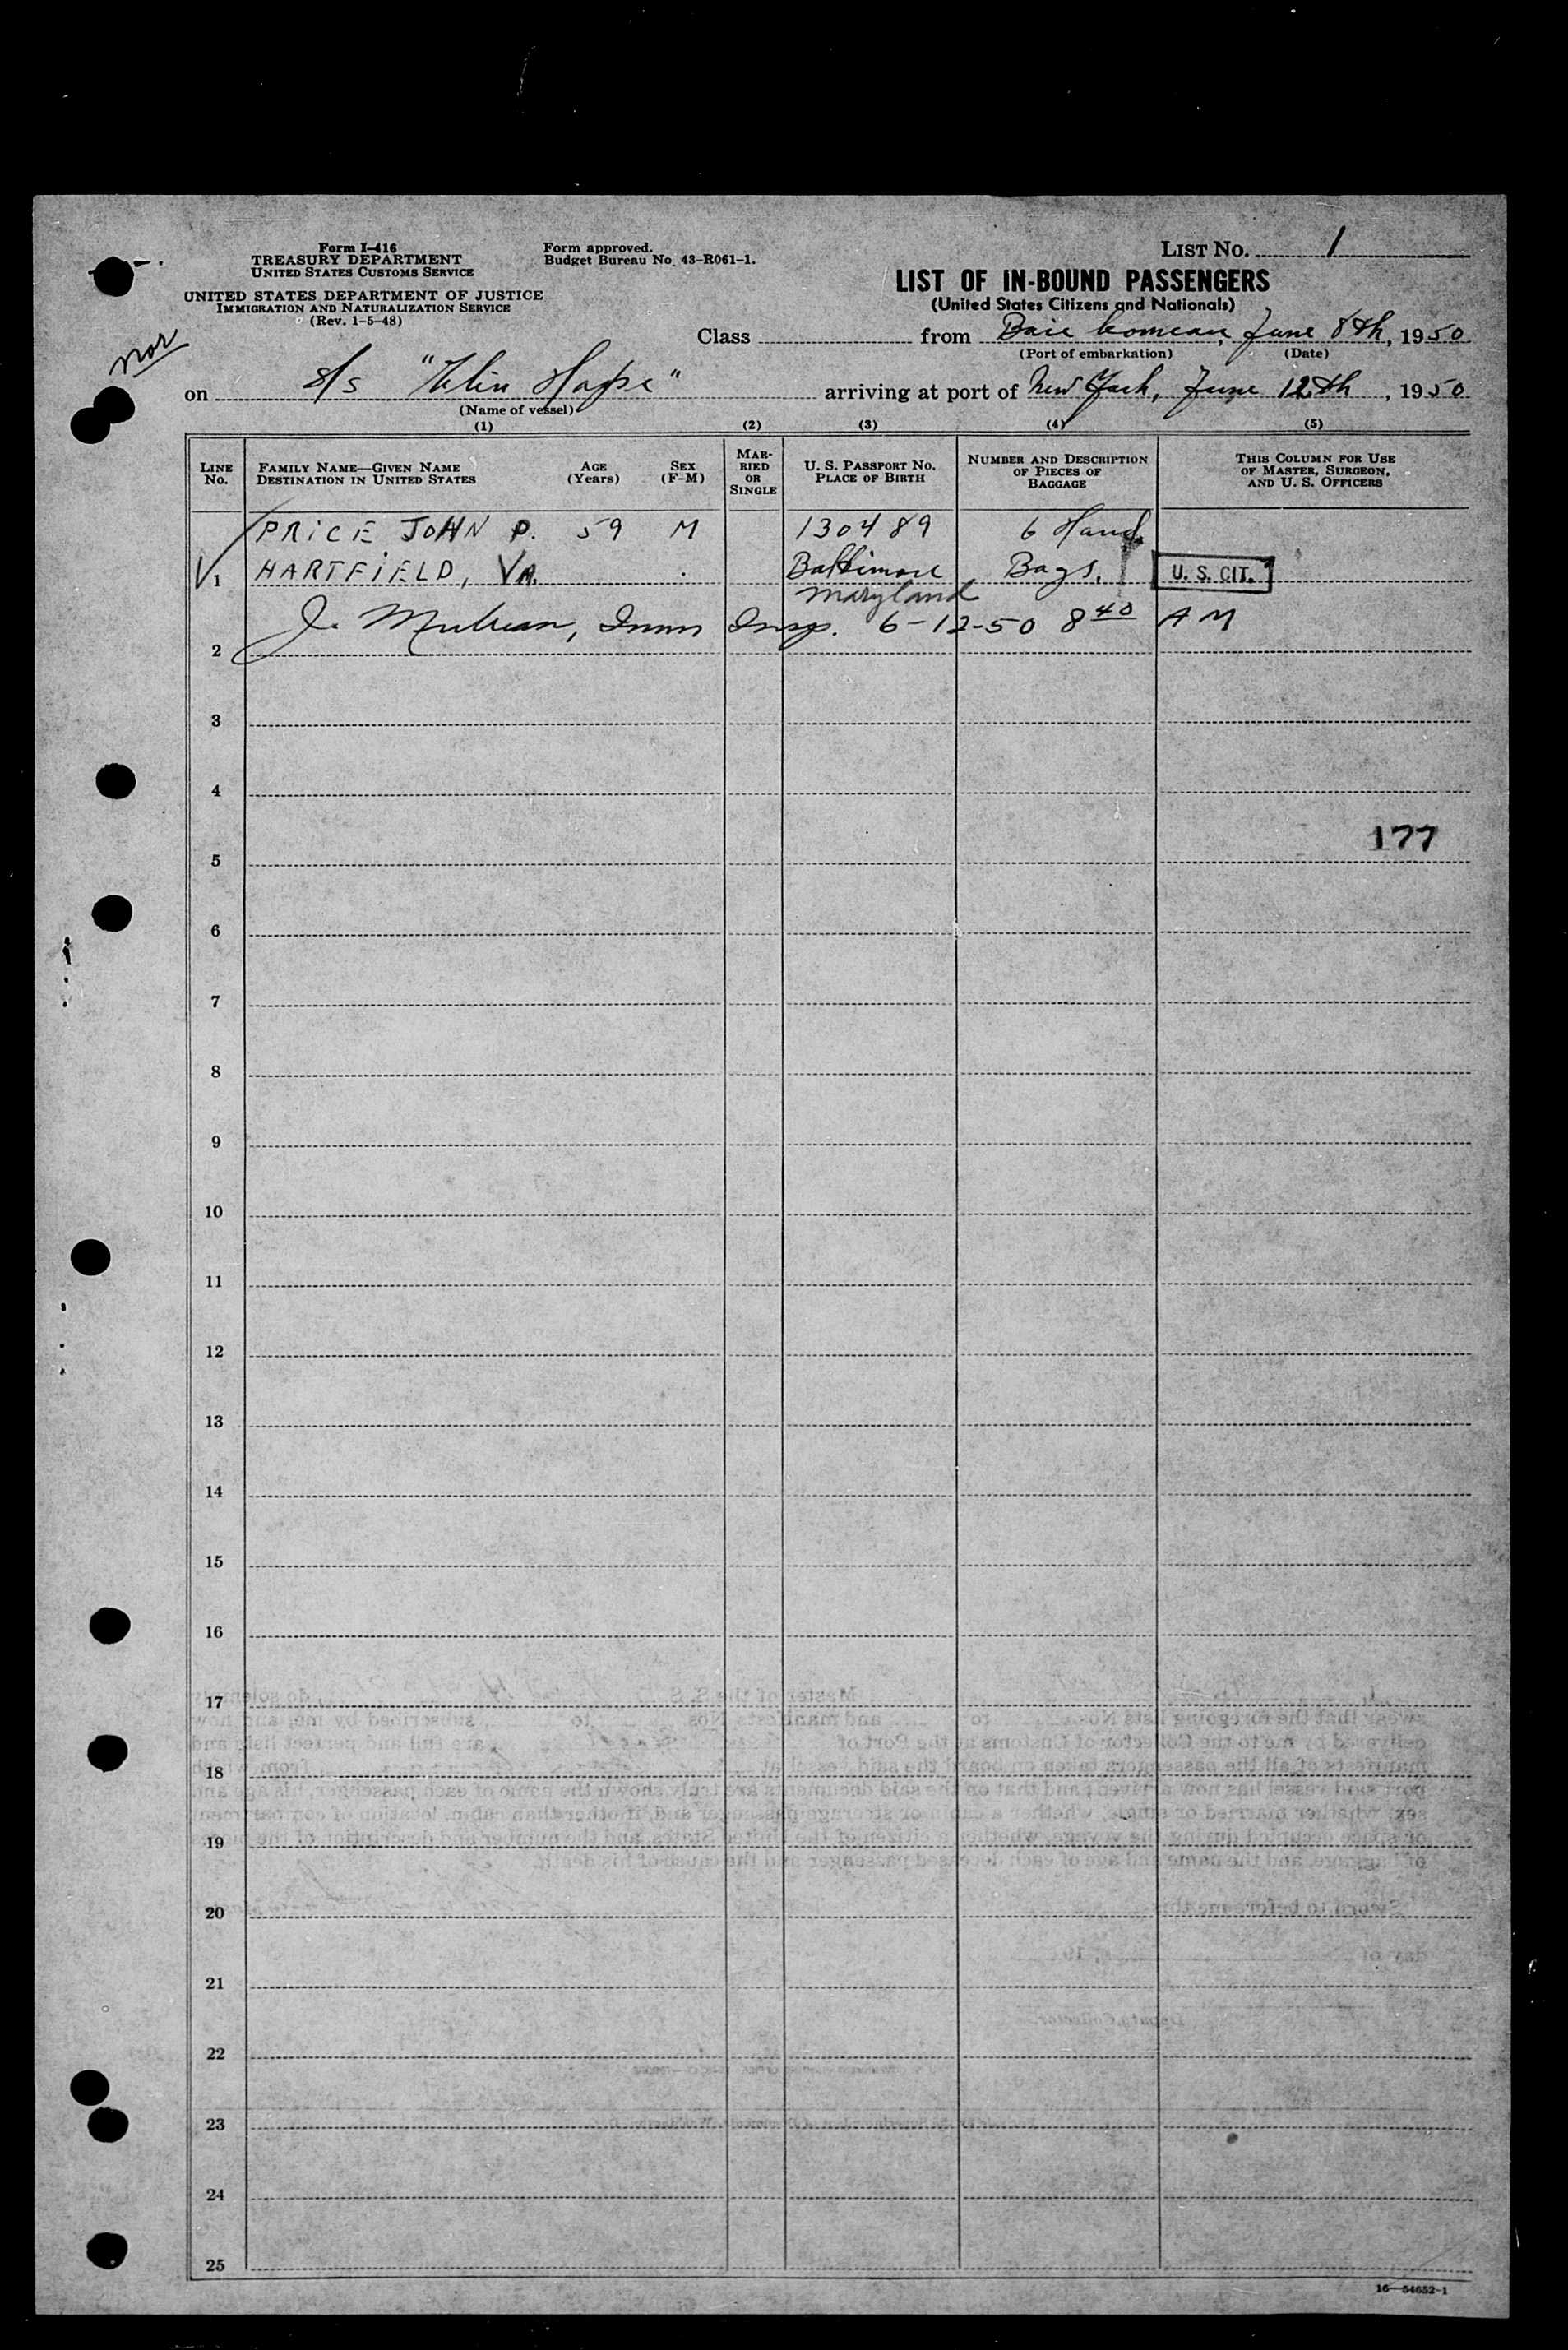 Form I-416
TREASURY DEPARTMENT
UNITED STATES CUSTOMS SERVICE
UNITED STATES DEPARTMENT OF JUSTICE
IMMIGRATION AND NATURALIZATION SERVICE
(Rev. 1-5-48)
Form approved.
Budget Bureau No. 43-R061-1.
LIST NO. 1
LIST OF IN-BOUND PASSENGERS
(United States Citizens and Nationals)
Nor
Class from Baie Comeau, June 8th, 1950
(Port of embarkation) (Date)
on S/S "Elin Hope" arriving at port of New York, June 12th, 1950
(Name of vessel)
(1) (2) (3) (4) (5)
LINE NO.
FAMILY NAME—GIVEN NAME
DESTINATION IN UNITED STATES
AGE (Years)
SEX (F-M)
MARRIED OR SINGLE
U. S. PASSPORT NO.
PLACE OF BIRTH
NUMBER AND DESCRIPTION OF PIECES OF BAGGAGE
THIS COLUMN FOR USE OF MASTER, SURGEON, AND U. S. OFFICERS
PRICE JOHN P. 59 M 130489 6 Hand
1 HARTFIELD, VA. Baltimore Bags. U. S. CIT.
Maryland
J. Imm Insp. 6-12-50 8 40 AM
2
3
4
177
5
6
7
8
9
10
11
12
13
14
15
16
17
18
19
20
21
22
23
24
25
16—54652-1